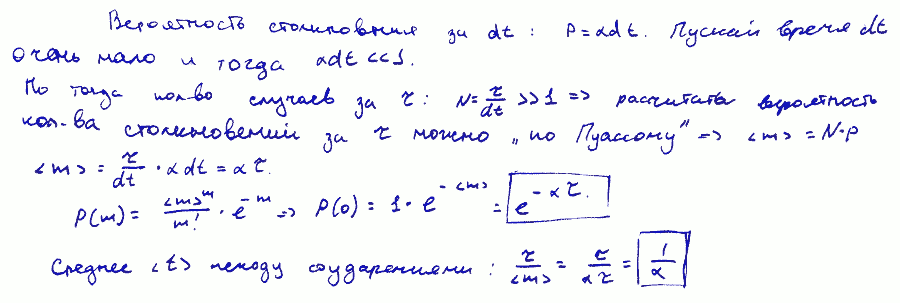 Вероятность столкновения за dt : P = αdt. Пускай время dt
очень мало и тогда αdt << 1.
Но тогда кол-во случаев за τ : N = τ/dt >> 1 => расчитать вероятность
кол-ва столкновений за τ можно „по Пуассону" => <m> = N·p
<m> = τ/dt · αdt = ατ.
P(m) = <m>^m/m! · e^-m => P(0) = 1· e^-<m> = e^-ατ.
Среднее <t> между соударениями : τ/<m> = τ/ατ = 1/α